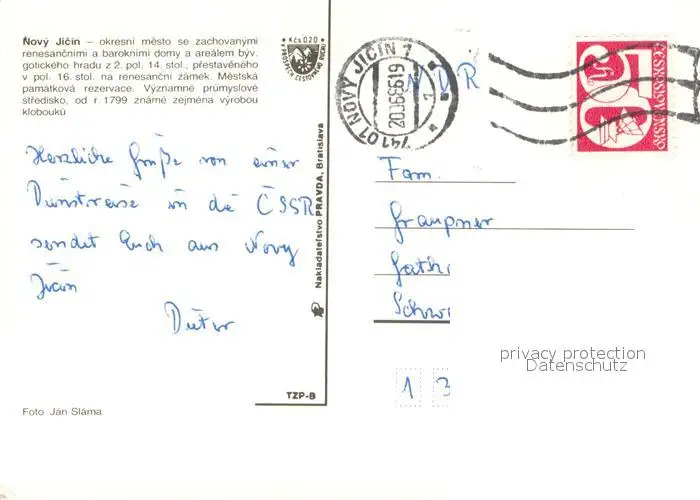 Nový Jičín – okresní město se zachovanými
renesančními a barokními domy a areálem býv.
gotického hradu z 2. pol. 14. stol., přestavěného
v pol. 16. stol. na renesanční zámek. Městská
památková rezervace. Významné průmyslové
středisko, od r. 1799 známé zejména výrobou
klobouků
Kčs 0,20
Herzliche Grüße von einer
Dienstreise in die ČSSR
sendet Euch aus Novy
Jičin
Dieter
Foto Ján Sláma
TZP-B
Nakladatelstvo PRAVDA, Bratislava
741 01 NOVÝ JIČÍN 1
NDR
50
ČESKOSLOVENSKO
Fam.
Graupner
privacy protection
Datenschutz
1 3